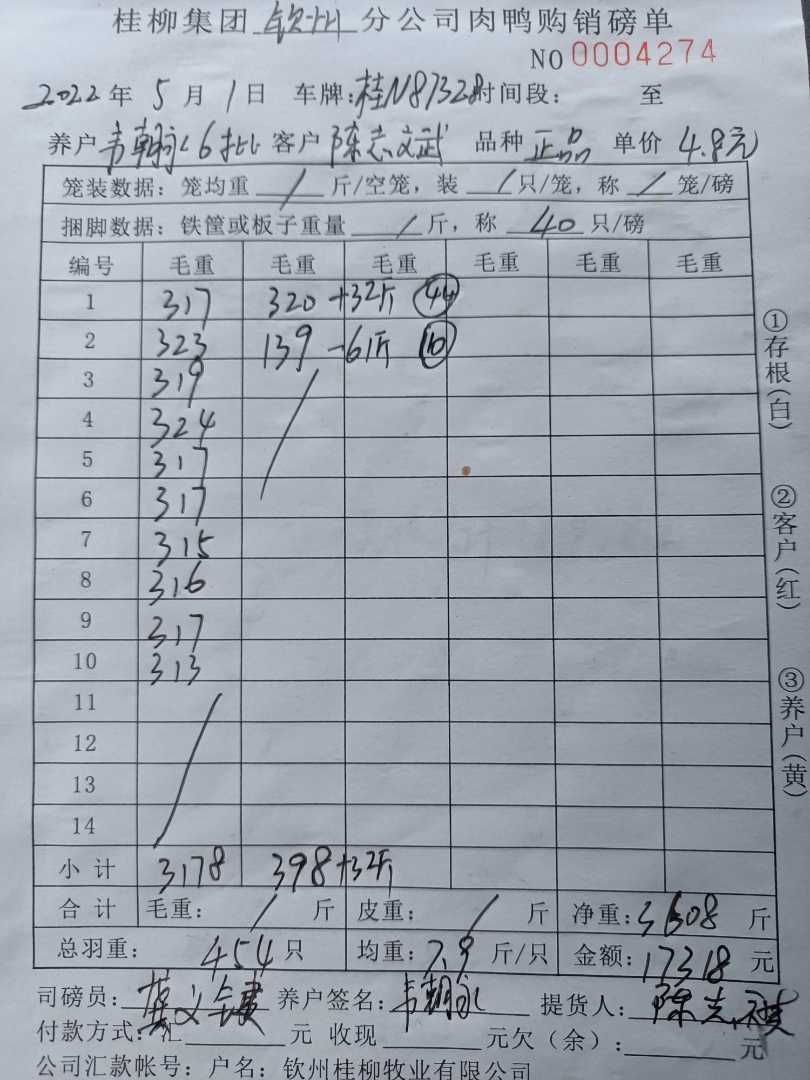 桂柳集团 钦州 分公司肉鸭购销磅单
NO 0004274
2022 年 5 月 1 日 车牌:桂N87328 时间段: 至
养户 韦朝永 6批 客户 陈志武 品种 正品 单价 4.8元
笼装数据: 笼均重 / 斤/空笼, 装 / 只/笼, 称 / 笼/磅
捆脚数据: 铁筐或板子重量 / 斤, 称 40 只/磅
编号 毛重 毛重 毛重 毛重 毛重 毛重
1 317 320 +32斤 44
2 323 139 -61斤 10
3 319
4 324
5 317
6 317
7 315
8 316
9 317
10 313
11
12
13
14
小计 3178 398 +32斤
合计 毛重: / 斤 皮重: / 斤 净重: 3608 斤
总羽重: 454 只 均重: 7.9 斤/只 金额: 17318 元
司磅员: 养户签名: 韦朝永 提货人: 陈志
付款方式: 汇 元 收现 元欠(余): 元
公司汇款帐号: 户名: 钦州桂柳牧业有限公司
①存根(白)
②客户(红)
③养户(黄)